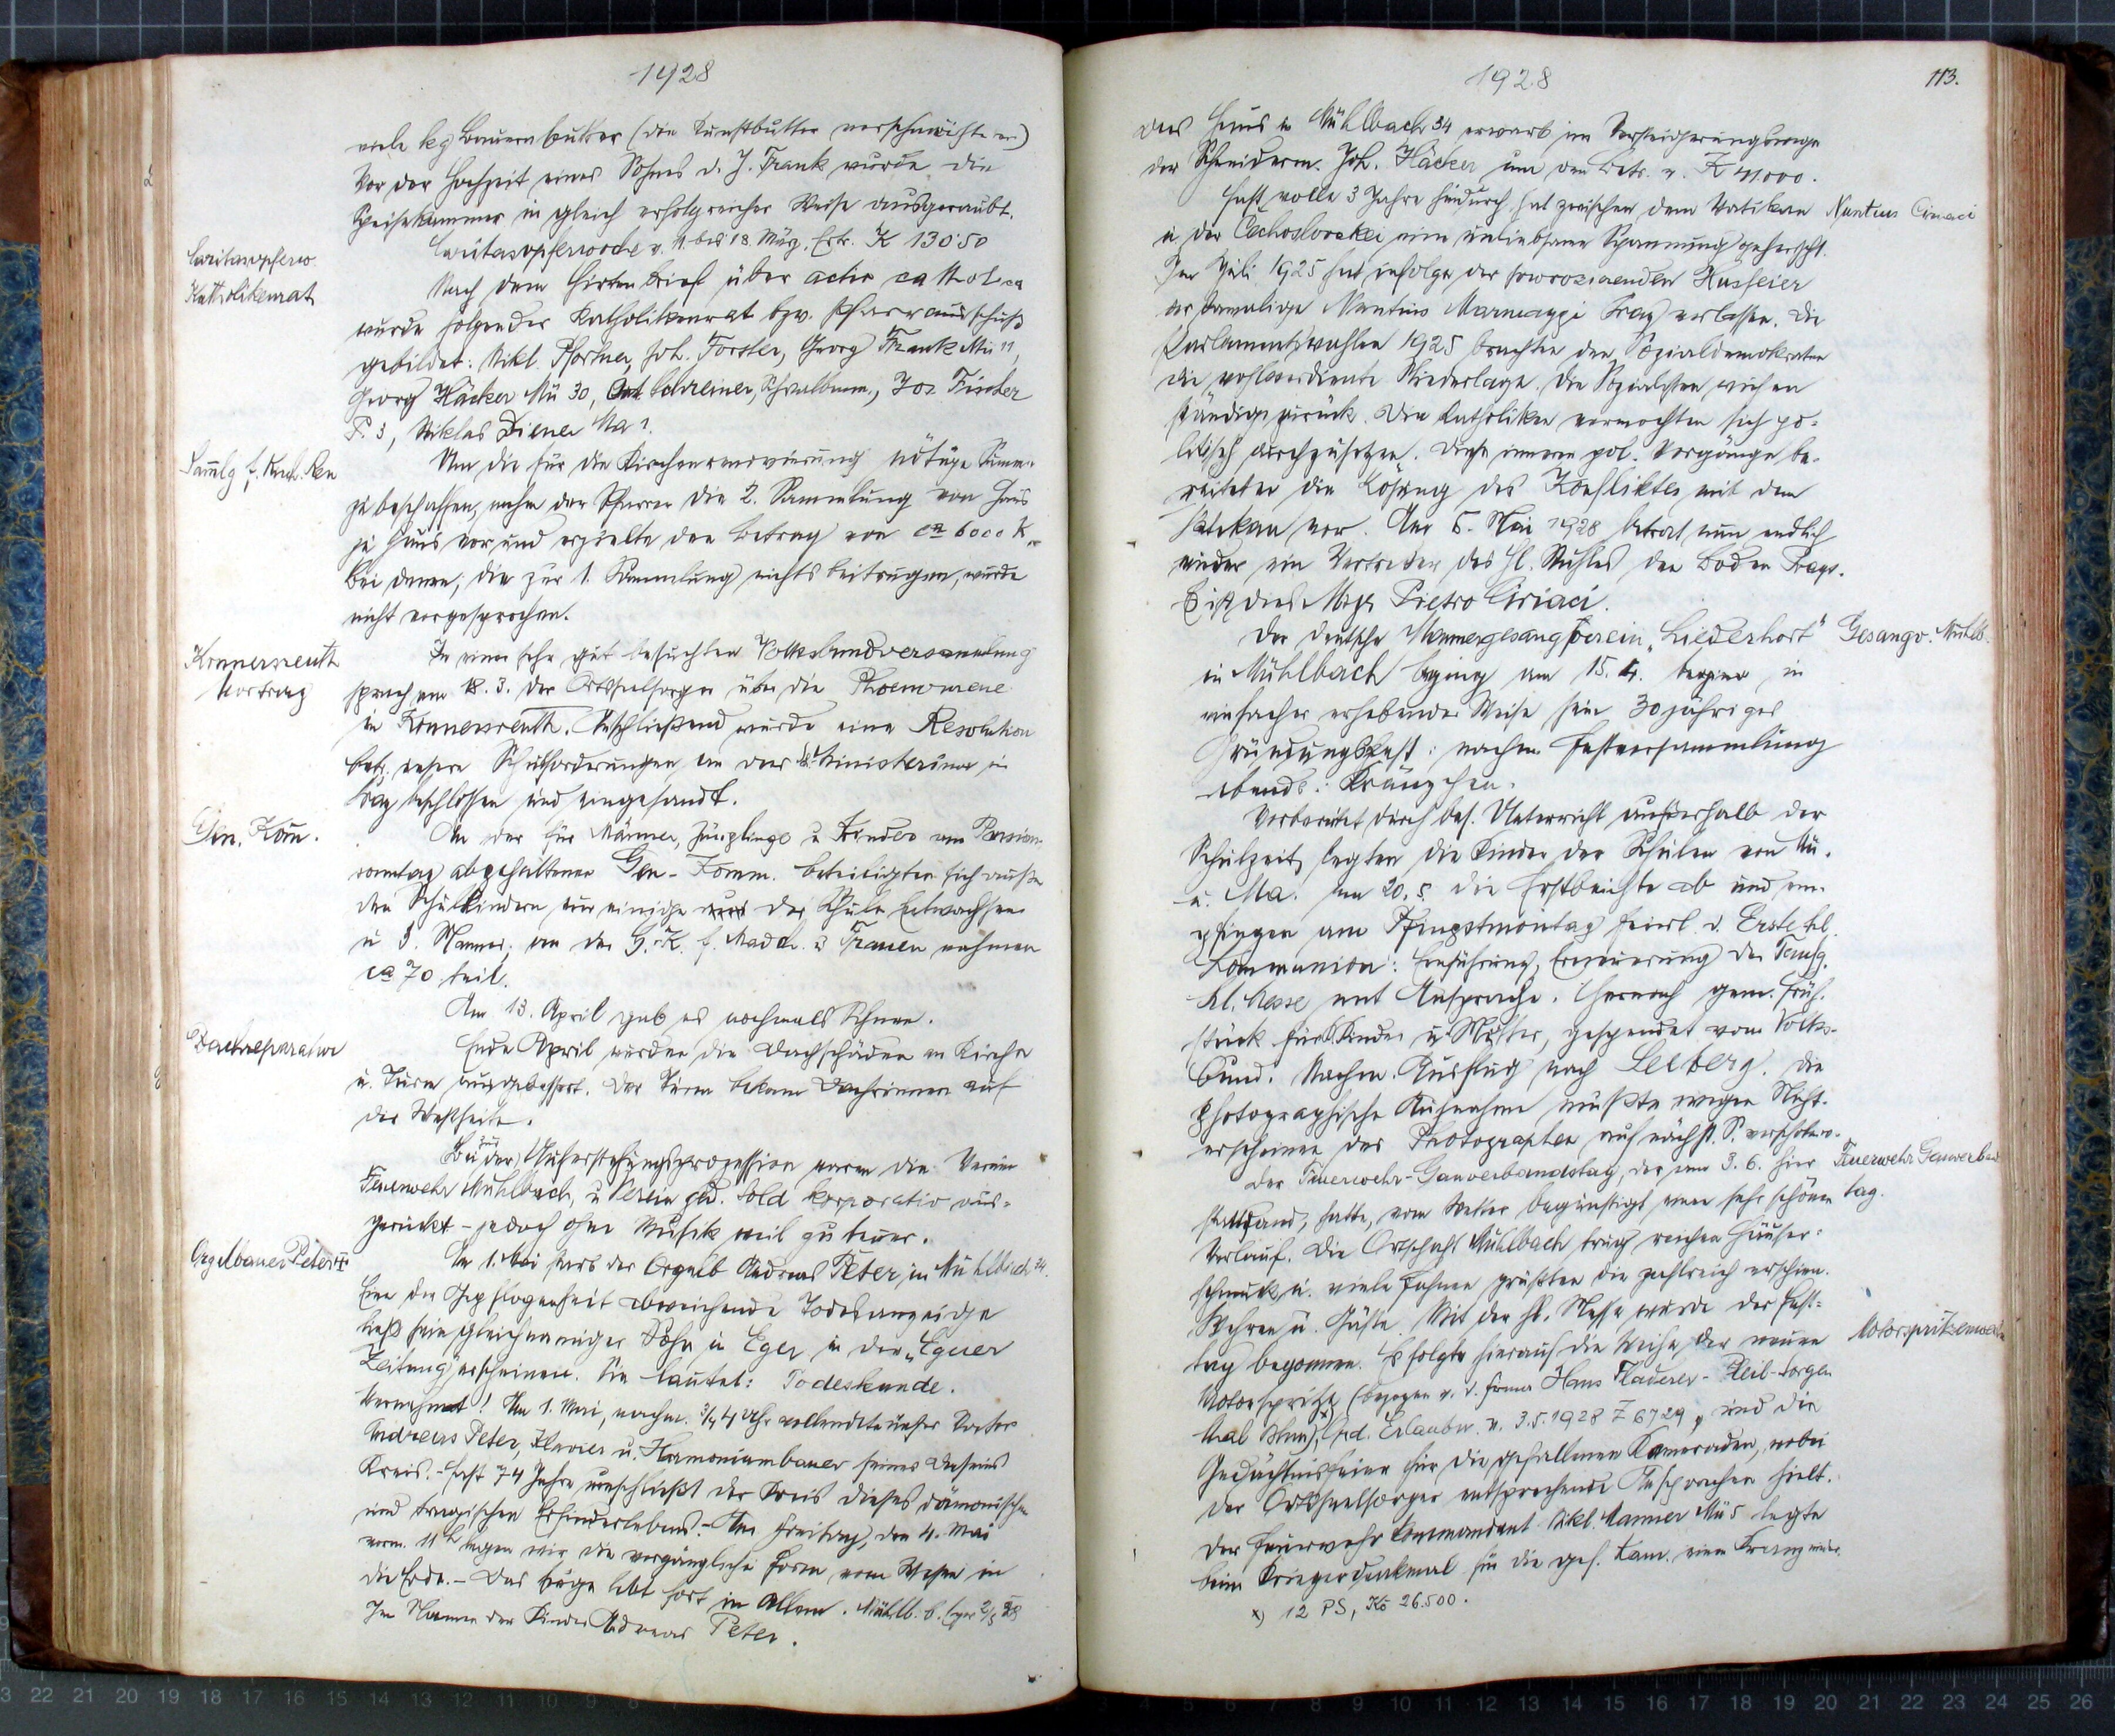 1928
viele kg Bauernbutter (die Kunstbutter verschmähte er)
Vor der Hochzeit eines Sohnes d. J. Frank wurde die
Speisekammer in gleich erfolgreicher Weise ausgeraubt.
Caritasopferw.
Caritasopferwoche v. 11. bis 18. März. Ertr. K 130·50
Katholikenrat
Nach dem Hirtenbrief über actio cattolica
wurde folgender Katholikenrat bzw. Pfarrausschuß
gebildet: Nikl. Pfortner, Joh. Forster, Georg Frank Mü 11,
Georg Häcker Mü 30, Ant. Schreiner, Schwalbenm., Jos Fischer
P. 3, Niklas Diener Ma 1.
Sammlg f. Kirch. Ren
Um die für die Kirchenrenovierung nötige Summe
zu beschaffen, nahm der Pfarrer die 2. Sammlung von Haus
zu Haus vor und erzielte den Betrag von ca 6000 K.
Bei denen, die zur 1. Sammlung nichts beitrugen, wurde
nicht vorgesprochen.
Konnersreuth
Vortrag
In einer sehr gut besuchten Volksbundversammlung
sprach am 18. 3. der Ortsseelsorger über die Phoenomene
in Konnersreuth. Anschließend wurde eine Resolution
betr. unsere Schulforderungen an das Ministerium in
Prag beschlossen und eingesandt.
Gen. Kom.
An der für Männer, Jünglinge u Kinder am Passion-
sonntag abgehaltenen Gen-Komm. beteiligten sich außer
den Schulkindern nur einige der Schule Entwachsene
u 3. Männer, an der G.-K. f. Mädch. u Frauen nahmen
ca 70 teil.
Am 13. April gab es nochmals Schnee.
Dachreparatur
Ende April wurden die Dachschäden an Kirche
u. Turm ausgebessert. Der Turm bekam Dachrinnen auf
der Westseite.
Zu der Auferstehungsprozession waren die Vereine
Feuerwehr Mühlbach, u Verein ged. Sold korporativ aus-
gerückt - jedoch ohne Musik weil zu teuer.
Orgelbauer Peter †
Am 1. Mai starb der Orgelb Andreas Peter, in Mühlbach 34.
Eine der Gepflogenheit abweichende Todesanzeige
ließ sein gleichnamiger Sohn in Eger in der „Egerer
Zeitung" erscheinen. Sie lautet: Todeskunde.
Vernehmet! Am 1. Mai, nachm. 3/4 4 Uhr vollendete unser Vater
Andreas Peter, Klavier u. Harmoniumbauer seines Daseins
Kreis. - Fast 74 Jahre umschließt der Kreis dieses dämonischen
und tragischen Erfinderlebens. - Am Freitag, den 4. Mai
vorm. 11 h legen wir die vergängliche Form vom Wesen in
die Erde. - Das Ewige lebt fort in Allem. Mühlb. b. Eger 2/5 28
Im Namen der Kinder Andreas Peter.
1928
113.
Das Haus in Mühlbach 34 erwarb im Versteigerungswege
der Schneiderm. Joh. Häcker um den Betr. v. K 41000.
Nuntius Ciriaci
Fast volle 3 Jahre hindurch hat zwischen dem Vatikan
u der Čechoslovakei eine unliebsame Spannung geherrscht.
Im Juli 1925 hat infolge der provozierenden Husfeier
der damalige Nuntius Marmaggi Prag verlassen. Die
Parlamentswahlen 1925 brachten den Sozialdemokraten
die wohlverdiente Niederlage. Die Sozialisten wichen
ständig zurück. Die Katholiken vermochten sich po-
litisch durchzusetzen. Diese inneren pol. Vorgänge be-
reiteten die Lösung des Konfliktes mit dem
Vatikan vor. Am 5. Mai 1928 betrat nun endlich
wieder ein Vertreter des Hl. Stuhles den Boden Prags.
Es ist dies Msgr. Pietro Ciriaci.
Gesangv. Mühlb.
Der deutsche Männergesangverein „Liederhort"
in Mühlbach beging am 15. 4. in
einfacher erhebender Weise sein 30jähriges
Gründungsfest: nachm. Festversammlung
abends: Kränzchen.
Vorbereitet durch bes. Unterricht außerhalb der
Schulzeit legten die Kinder der Schulen von Mü.
u. Ma. am 20. 5. die Erstbeichte ab und em-
pfingen am Pfingstmontag feierl. d. Erste hl.
Kommunion: Einführung, Erneuerung der Taufg.
hl. Messe mit Ansprache. Hernach gem. Früh-
stück für Kinder u. Mütter, gespendet vom Volks-
bund. Nachm. Ausflug nach Seeberg. Die
photographische Aufnahme mußte wegen Nicht-
erscheinen des Photographen auf nächst. S. verschoben w.
Feuerwehr Gauverband
tag.
Der Feuerwehr-Gauverbandstag, der am 3. 6. hier
stattfand, hatte, vom Wetter begünstigt einen sehr schönen
Verlauf. Die Ortschaft Mühlbach trug reichen Häuser-
schmuck u. viele Fahnen grüßten die zahlreich erschien.
Wehren u. Gäste. Mit der hl. Messe wurde der Fest-
Motorspritzenweihe
tag begonnen. Es folgte hierauf die Weihe der neuen
Motorspritze (bezogen v. d. Firma Hans Fladerer-Pleil-Sorgen
thal x) Ord. Erlaubn. v. 3.5.1928 Z 6729, und die
Gedächtnisfeier für die gefallenen Kameraden, wobei
der Ortsseelsorger entsprechende Ansprachen hielt.
Der Feuerwehr Kommandant Nikl. Manner Mü 5 legte
beim Kriegerdenkmal für die gef. Kam. einen Kranz nieder.
x) 12 PS, Kč 26.500.